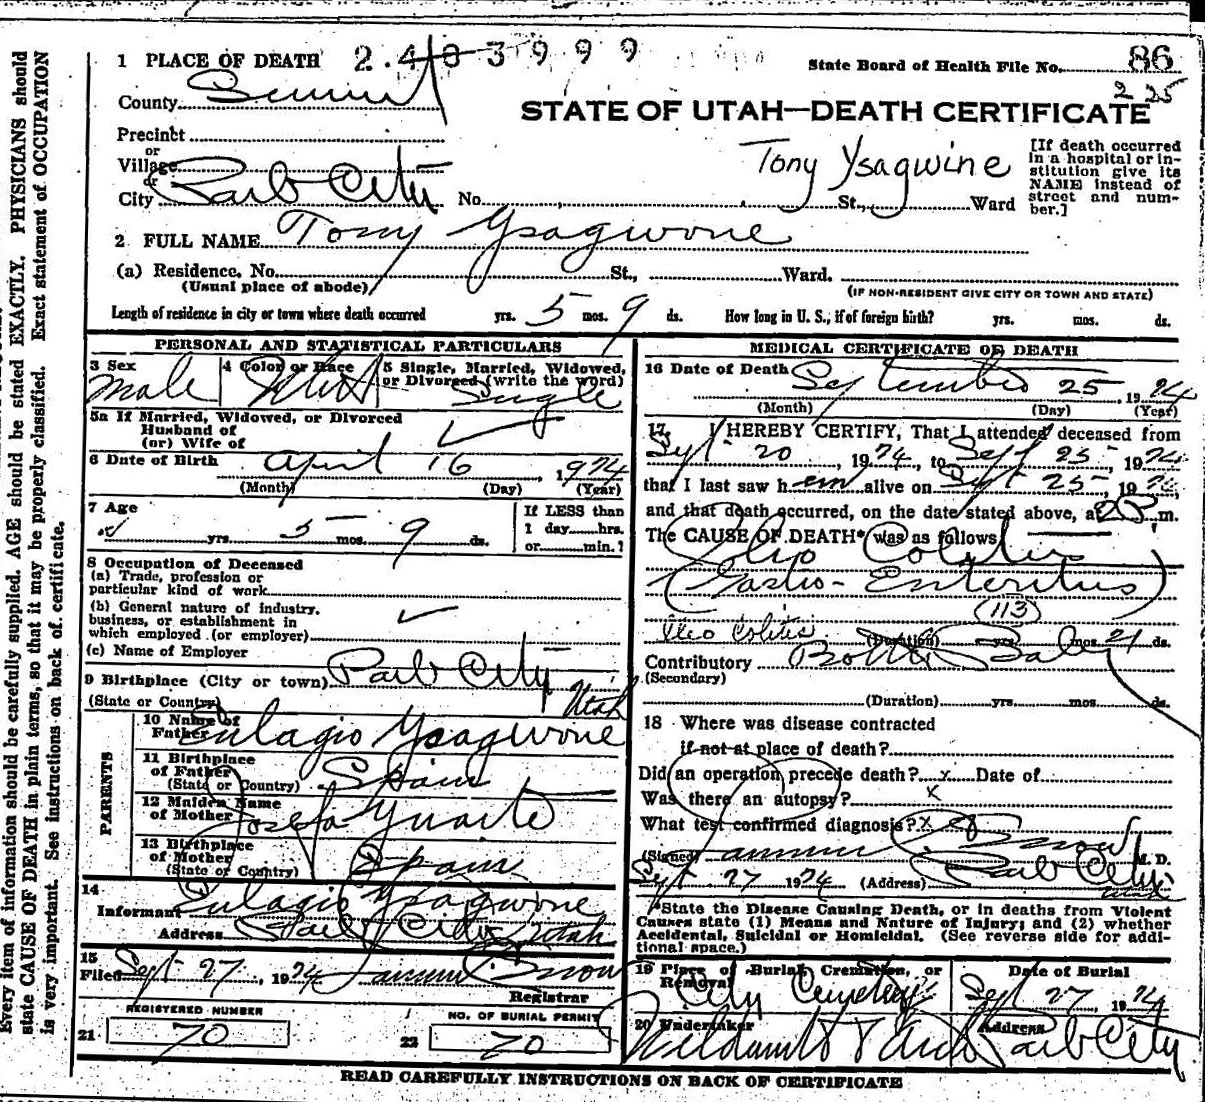 1 PLACE OF DEATH 2403999
State Board of Health File No. 86
225
County Summit
STATE OF UTAH—DEATH CERTIFICATE
Precinct
or
Village
or
City Park City No. St., Ward
Tony Ysagwine
[If death occurred
in a hospital or in-
stitution give its
NAME instead of
street and num-
ber.]
2 FULL NAME Tony Ysagwone
(a) Residence. No. St., Ward.
(Usual place of abode) (IF NON-RESIDENT GIVE CITY OR TOWN AND STATE)
Length of residence in city or town where death occurred yrs. 5 mos. 9 ds. How long in U. S., if of foreign birth? yrs. mos. ds.
PERSONAL AND STATISTICAL PARTICULARS
3 Sex 4 Color or Race 5 Single, Married, Widowed,
or Divorced (write the word)
Male White Single
5a If Married, Widowed, or Divorced
Husband of
(or) Wife of
6 Date of Birth April 16, 1924
(Month) (Day) (Year)
7 Age
yrs. 5 mos. 9 ds.
If LESS than
1 day......hrs.
or......min.?
8 Occupation of Deceased
(a) Trade, profession or
particular kind of work
(b) General nature of industry,
business, or establishment in
which employed (or employer)
(c) Name of Employer
9 Birthplace (City or town) Park City
(State or Country) Utah
PARENTS
10 Name of
Father Eulagio Ysagwone
11 Birthplace
of Father
(State or Country) Spain
12 Maiden Name
of Mother Josefa Yuarte
13 Birthplace
of Mother
(State or Country) Spain
14
Informant Eulagio Ysagwone
Address Park City Utah
15
Filed Sept 27, 1924
Registrar
REGISTERED NUMBER NO. OF BURIAL PERMIT
21 70 22 70
MEDICAL CERTIFICATE OF DEATH
16 Date of Death September 25, 1924
(Month) (Day) (Year)
17. I HEREBY CERTIFY, That I attended deceased from
Sept 20, 1924, to Sept 25, 1924,
that I last saw h em alive on Sept 25, 1924,
and that death occurred, on the date stated above, at m.
The CAUSE OF DEATH* was as follows
Ileo Colitis
(Gastro-Enteritus)
(113)
Ileo Colitis (Duration) yrs. mos. 21 ds.
Contributory Bottle Baby
(Secondary)
(Duration) yrs. mos. ds.
18 Where was disease contracted
if not at place of death?
Did an operation precede death? x Date of
Was there an autopsy? x
What test confirmed diagnosis? x
(Signed) M. D.
Sept 27 1924 (Address) Park City, Utah
*State the Disease Causing Death, or in deaths from Violent
Causes state (1) Means and Nature of Injury; and (2) whether
Accidental, Suicidal or Homicidal. (See reverse side for addi-
tional space.)
19 Place of Burial, Cremation, or
Removal
Date of Burial
City Cemetery Sept 27, 1924
20 Undertaker Address
Park City
READ CAREFULLY INSTRUCTIONS ON BACK OF CERTIFICATE
Every item of information should be carefully supplied. AGE should be stated EXACTLY. PHYSICIANS should
state CAUSE OF DEATH in plain terms, so that it may be properly classified. Exact statement of OCCUPATION
is very important. See instructions on back of certificate.